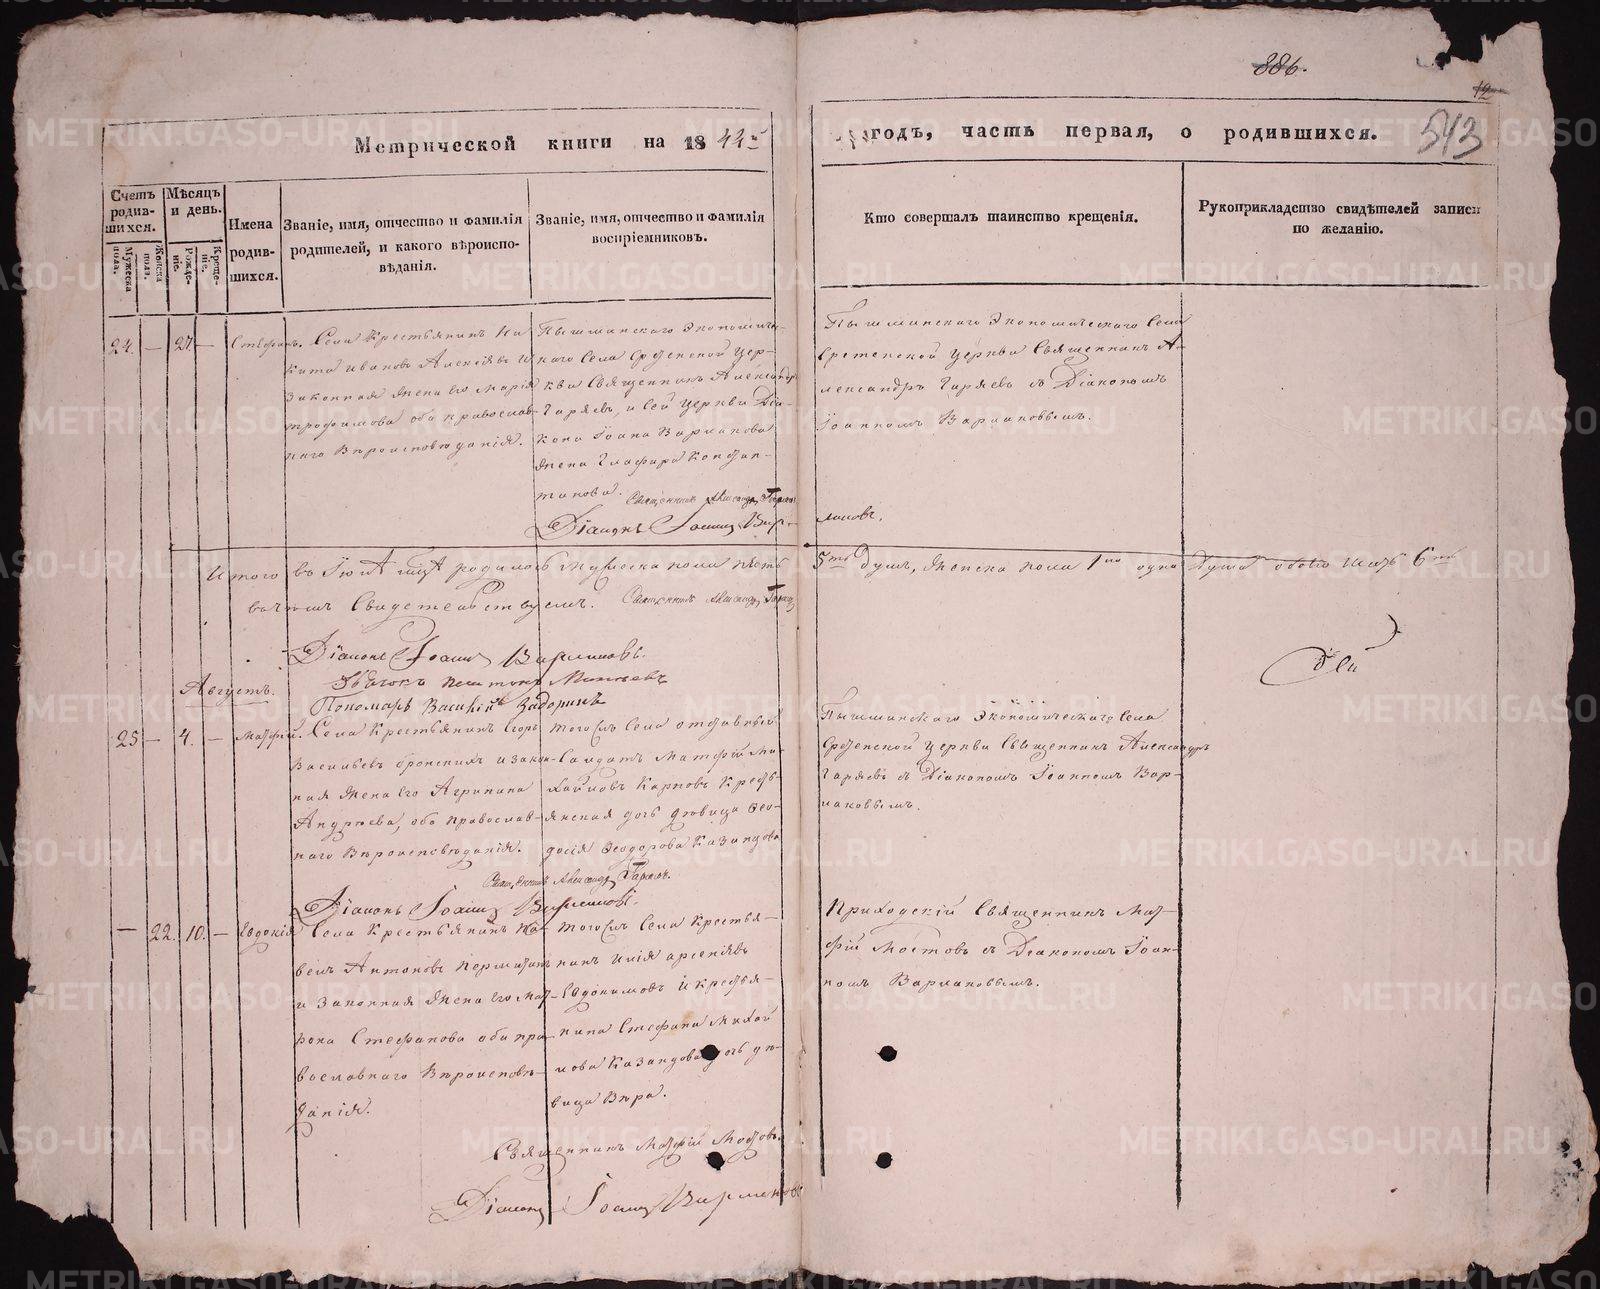 886.
12
543
Метрической книги на 18
годъ, часть первая, о родившихся.
Счетъ родившихся.
Мужеска пола.
Женска пола.
Мѣсяцъ и день.
Рожденіе.
Крещеніе.
Имена родившихся.
Званіе, имя, отчество и фамилія родителей, и какого вѣроисповѣданія.
Званіе, имя, отчество и фамилія воспріемниковъ.
Кто совершалъ таинство крещенія.
Рукоприкладство свидѣтелей записи по желанію.
24. — 27 — Стефанъ.
Села Крестьянинъ Ни
кита Ивановъ Алексіевъ и
законная жена его Марія
трофимова оба православ-
наго Вѣроисповѣданія.
Пышминскаго Экономичес-
каго Села Срѣтенской Цер-
кви Священникъ Александръ
Гаряевъ, и сей Церкви Діа-
кона Іоана Вармакова
жена Глафира Констан-
тинова. Священникъ Александръ Гаряевъ
Діаконъ Іоаннъ Вар-
маковъ.
Пышминскаго Экономическаго Села
Сретенской Церкви Священникъ А-
лександръ Гаряевъ съ Діакономъ
Іоанномъ Вармаковымъ.
Итого въ Іюлѣ мцѣ родилось мужеска пола пять
5ть душъ, женска пола 1на одна душа обоего шесть 6ть
въ чемъ Свидетельствуемъ. Священникъ Александръ Гаряевъ
Діаконъ Іоаннъ Вармаковъ.
Пономарь Василій Задоринъ
Августъ.
25 — 4. — Матфій.
Села Крестьянинъ Егоръ
Васильевъ Бронскихъ и закон-
ная жена его Агрипина
Андреева, оба православ-
наго Вѣроисповѣданія.
Тогожъ Села отставный
Салдатъ Матфій Ми-
хайловъ Карповъ Кресть-
янская дочь дѣвица Ѳео-
досія Ѳеодорова Казанцова
Священникъ Александръ Гаряевъ.
Діаконъ Іоаннъ Вармаковъ.
Пышминскаго Экономическаго Села
Срѣтенской Церкви Священникъ Александръ
Гаряевъ съ Діакономъ Іоанномъ Вар-
маковымъ.
— 22. 10. — Евдокія
Села Крестьянинъ Па-
велъ Антоновъ
и Законная жена его Мат-
рона Стефанова оба пра-
вославнаго Вѣроисповѣ-
данія.
Тогожъ Села Крестья-
нинъ Илія Арсеніевъ
Евдокимовъ и Крестья-
нина Стефана Михай
лова Казанцова дочь дѣ-
вица Вѣра.
Священникъ Матфій Мостовъ.
Діаконъ Іоаннъ Вармаковъ
Приходскій Священникъ Мат-
фій Мостовъ съ Діакономъ Іоан-
номъ Вармаковымъ.
METRIKI.GASO-URAL.RU